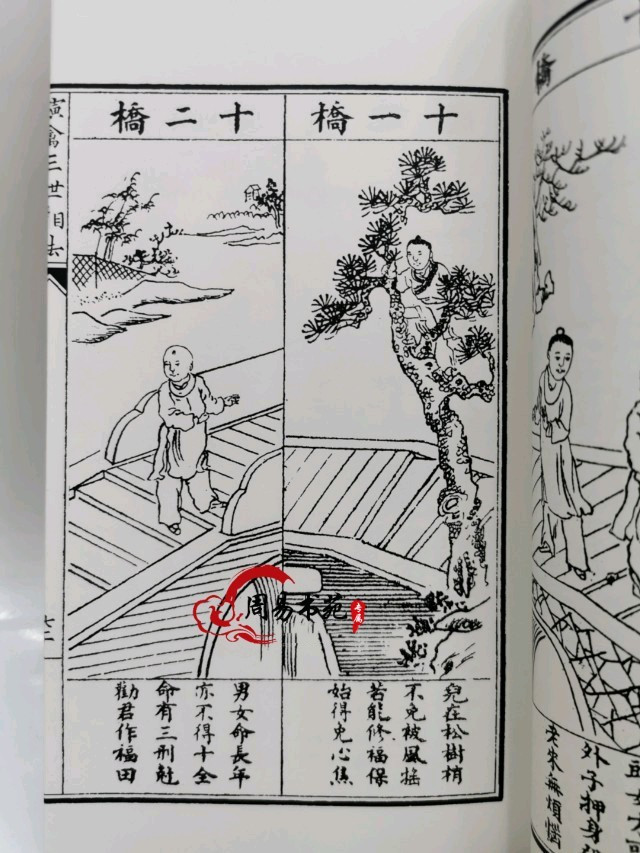 十一橋
兒在松樹梢
不免被風搖
若能修福保
始得免心焦
十二橋
男女命長年
亦不得十全
命有三刑尅
勸君作福田
演禽三世相法
周易书苑
专属
外子押身
老來無煩惱